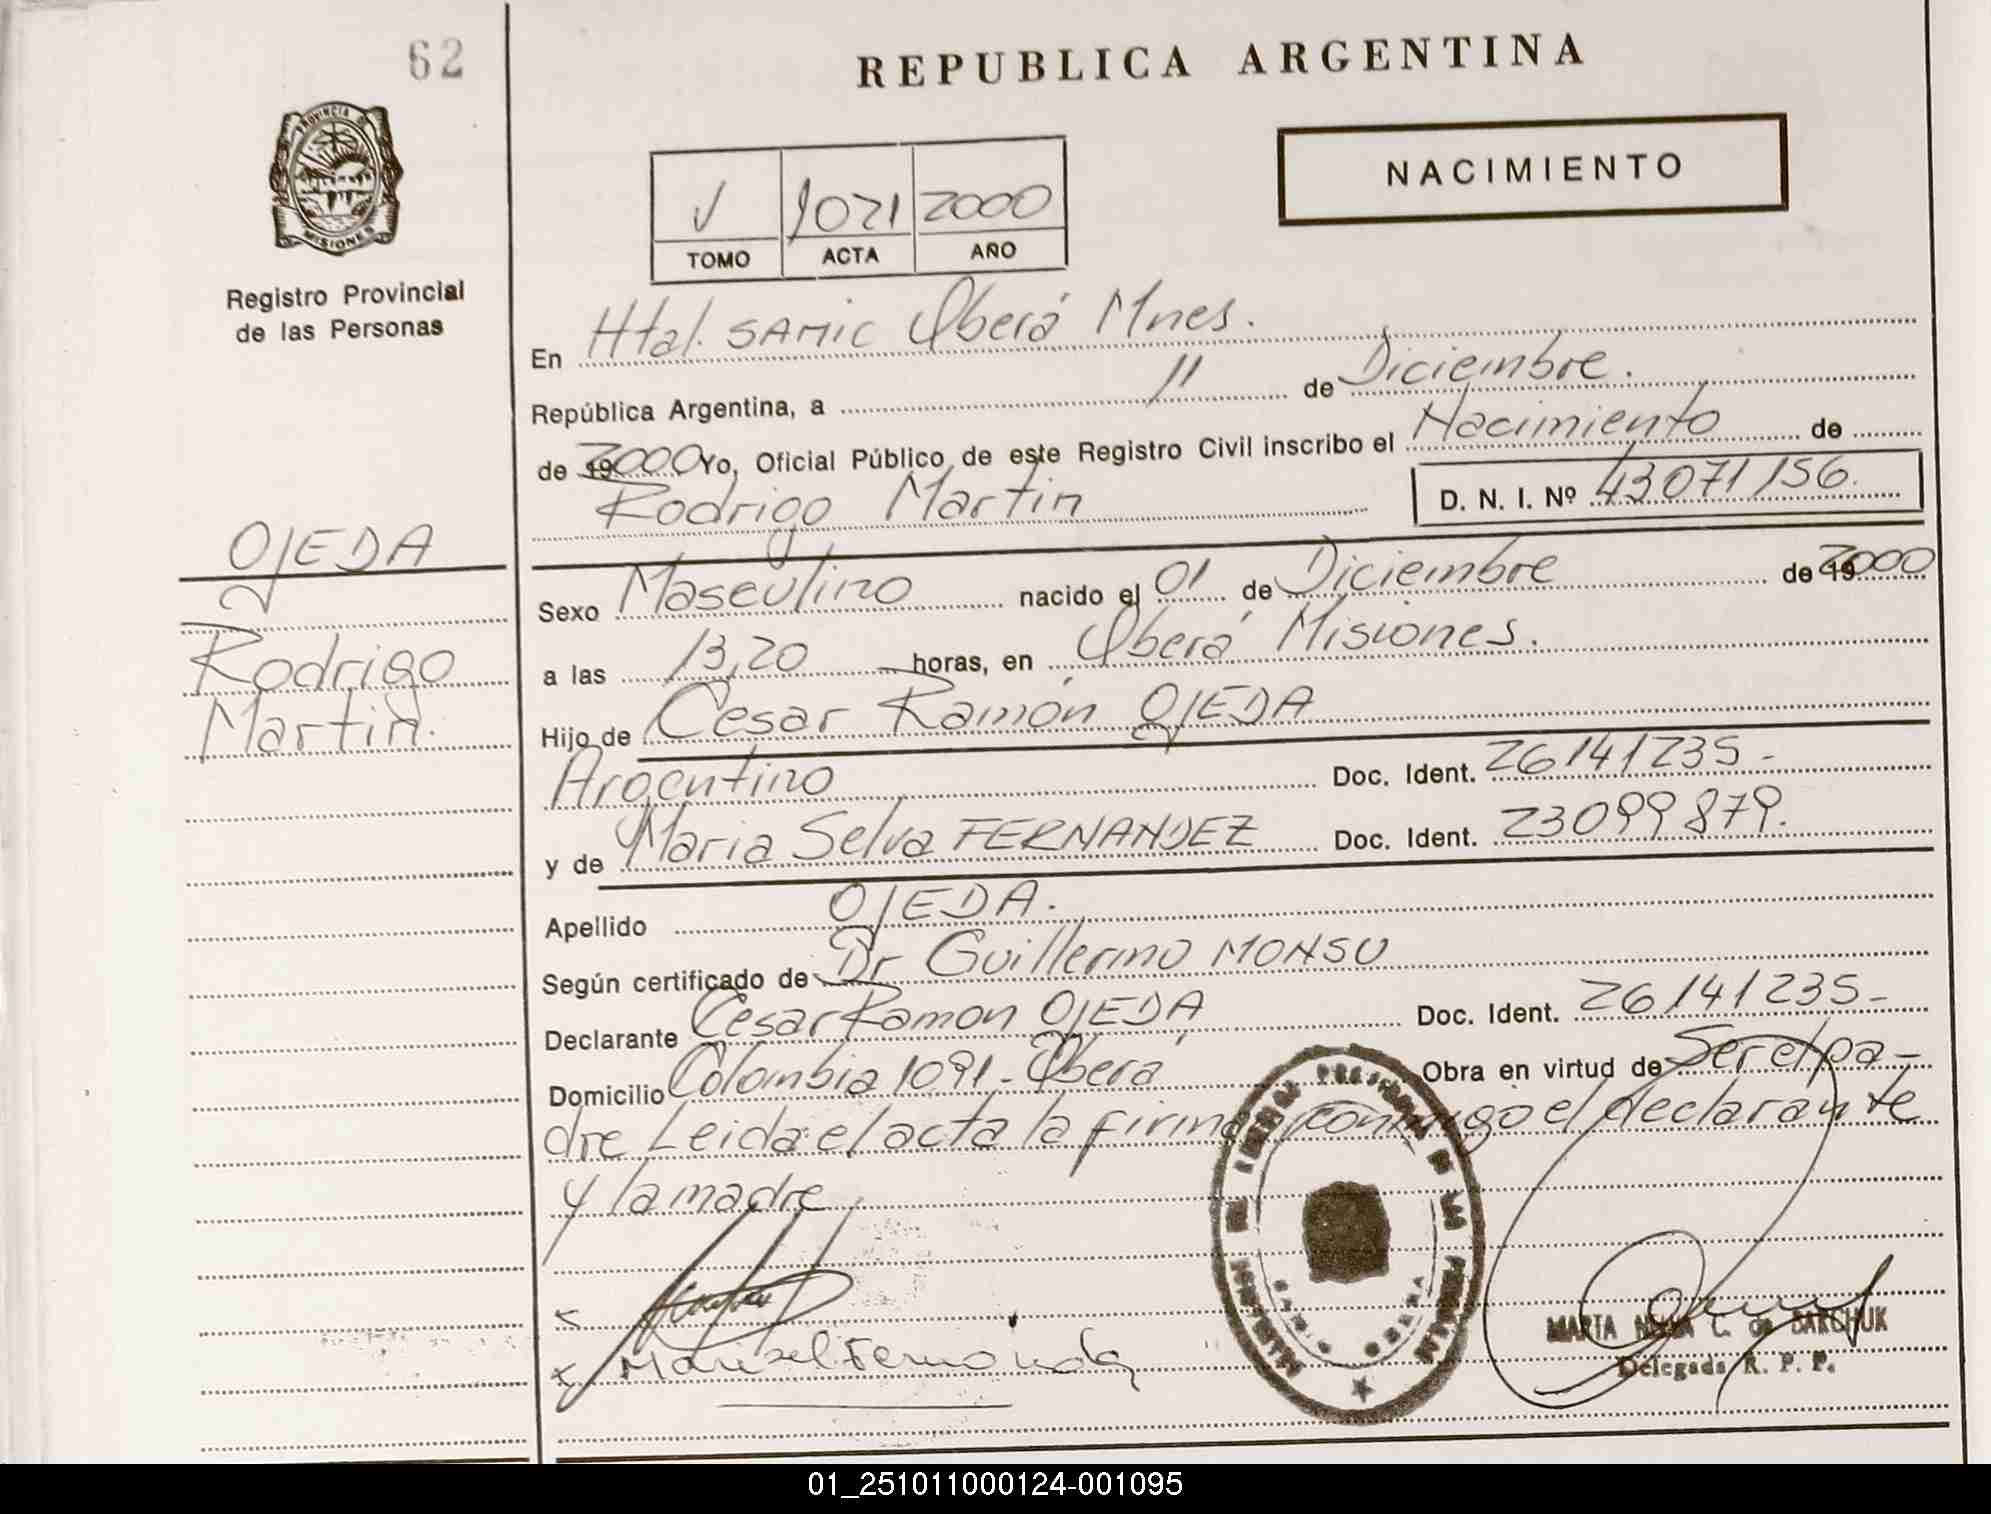 62
REPUBLICA ARGENTINA
PROVINCIA DE
MISIONES
Registro Provincial
de las Personas
V 1021 2000
TOMO ACTA AÑO
NACIMIENTO
En Htal. SAMIC Oberá Mnes.
República Argentina, a 11 de Diciembre.
de 2000 Yo, Oficial Público de este Registro Civil inscribo el Nacimiento de
Rodrigo Martin D. N. I. Nº 43071156.
OJEDA
Rodrigo
Martin.
Sexo Masculino nacido el 01 de Diciembre de 19 2000
a las 13,20 horas, en Oberá Misiones.
Hijo de Cesar Ramón OJEDA
Argentino Doc. Ident. 26141235-
y de Maria Selva FERNANDEZ Doc. Ident. 23099879.
Apellido OJEDA.
Según certificado de Dr Guillermo MONSU
Declarante Cesar Ramon OJEDA Doc. Ident. 26141235-
Domicilio Colombia 1091 - Oberá Obra en virtud de Ser el pa-
dre Leida el acta la firma conmigo el declarante
y la madre
MARTA C. de BARCHUK
Delegada R. P. P.
01_251011000124-001095